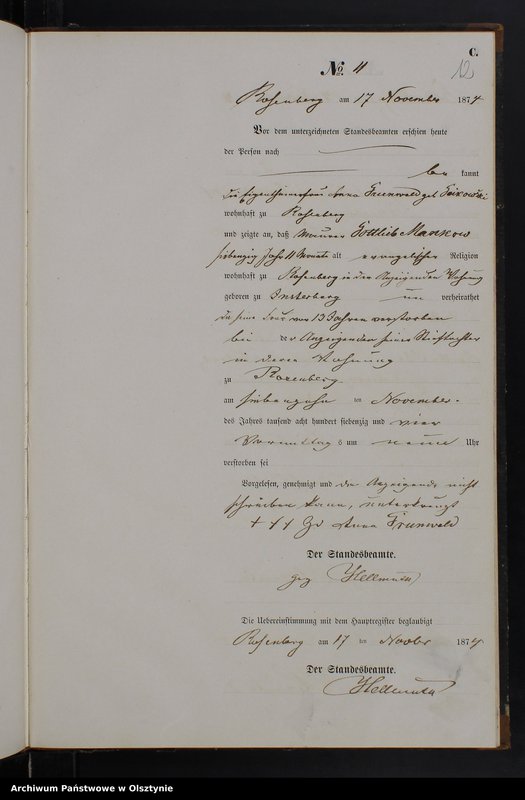 C.
12
No. 11
Rosenberg am 17 November 1874
Vor dem unterzeichneten Standesbeamten erschien heute
der Person nach
bekannt
die Eigenthümerfrau Anna Grunwald geb
wohnhaft zu Rosenberg
und zeigte an, daß Maurer Gottlieb Mankow
siebenzig Jahr 11 Monate alt evangelischer Religion
wohnhaft zu Rosenberg in der Anzeigenden Wohnung
geboren zu Insterberg un verheirathet
da seine Frau vor 13 Jahren verstorben
bei der Anzeigenden seiner Stieftochter
in deren Wohnung
zu Rosenberg
am siebenzehn ten November
des Jahres tausend acht hundert siebenzig und vier
Vormittag s um neun Uhr
verstorben sei
Vorgelesen, genehmigt und da Anzeigende nicht
schreiben kann, unterkreuzt
+ + + Hz Anna Grunwald
Der Standesbeamte.
gez Hellmuth
Die Uebereinstimmung mit dem Hauptregister beglaubigt
Rosenberg am 17 ten Novbr 1874
Der Standesbeamte.
Hellmuth
Archiwum Państwowe w Olsztynie